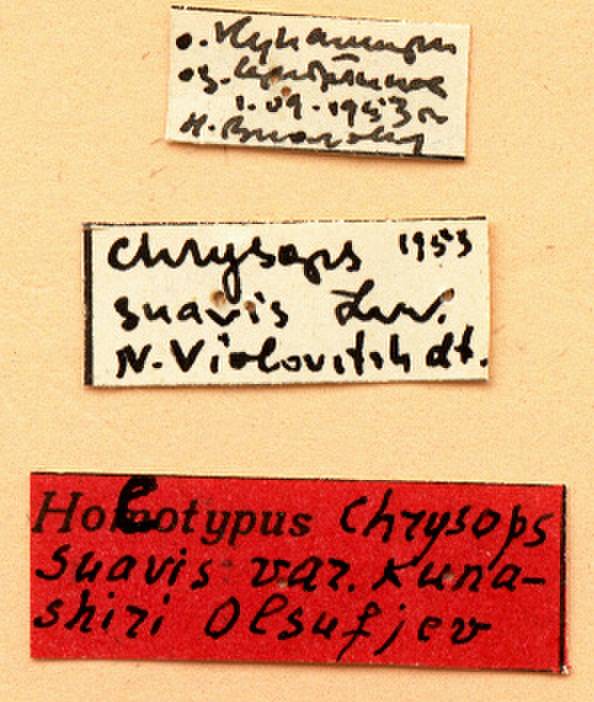 о. Кунашир
оз.
1.09.1953 г.
Н. Виолович
Chrysops 1953
suavis Lw.
N. Violovitsh dt.
Holotypus Chrysops
suavis var. kuna-
shiri Olsufjev